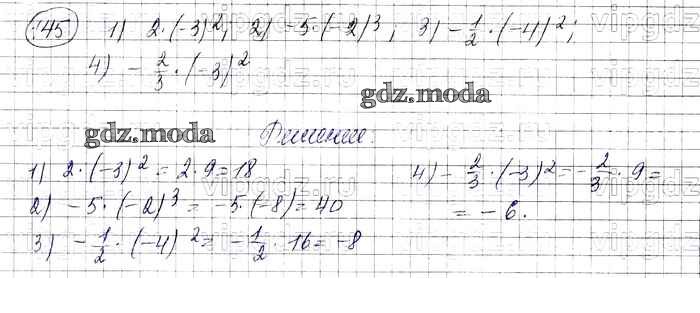 145 1) 2·(-3)²; 2) -5·(-2)³; 3) -1/2·(-4)²;
4) -2/3·(-3)²
gdz.moda
gdz.moda Решение.
1) 2·(-3)² = 2·9 = 18
2) -5·(-2)³ = -5·(-8) = 40
3) -1/2·(-4)² = -1/2·16 = -8
4) -2/3·(-3)² = -2/3·9 =
= -6.